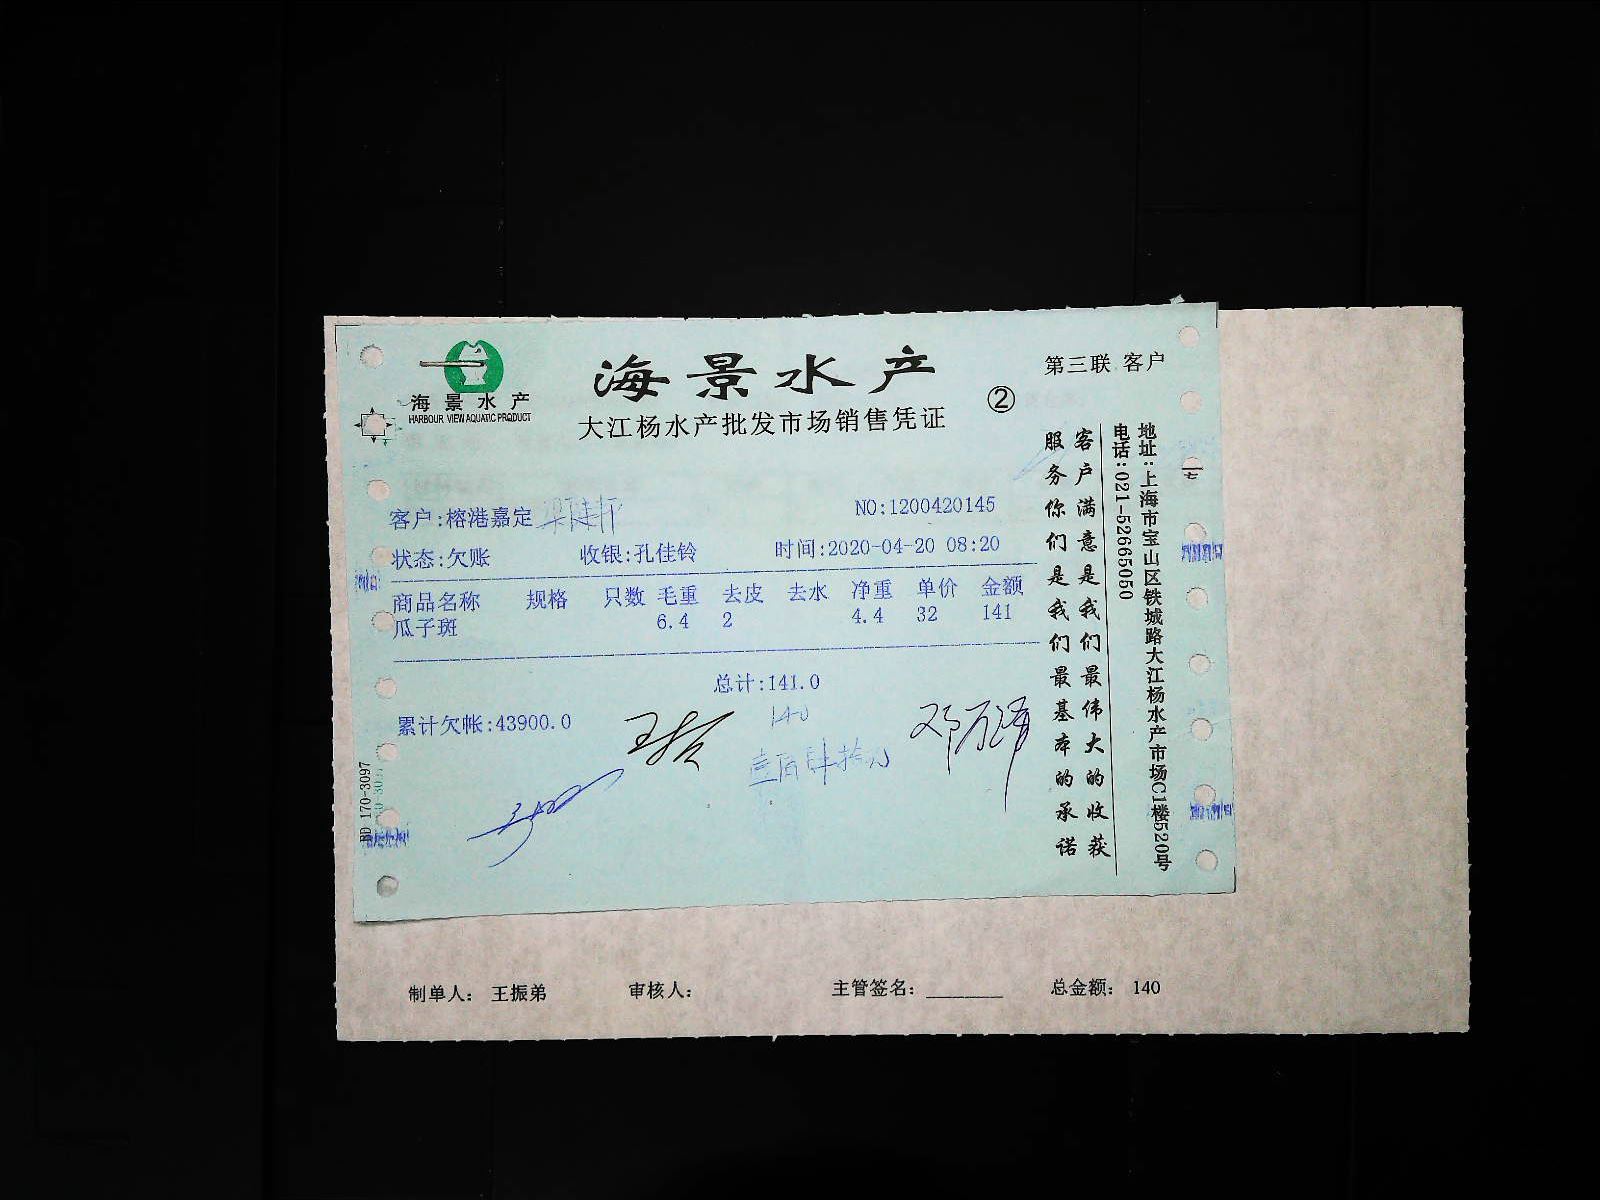 海景水产
HARBOUR VIEW AQUATIC PRODUCT
海景水产
大江杨水产批发市场销售凭证
②
第三联 客户
客户:榕港嘉定
NO:1200420145
状态:欠账 收银:孔佳铃 时间:2020-04-20 08:20
商品名称 规格 只数 毛重 去皮 去水 净重 单价 金额
瓜子斑 6.4 2 4.4 32 141
总计:141.0
140
累计欠帐:43900.0
壹佰肆拾元
客户满意是我们最伟大的收获
服务你们是我们最基本的承诺
地址:上海市宝山区铁城路大江杨水产市场C1楼520号
电话:021-52665050
BD 170-3097
制单人: 王振弟 审核人: 主管签名: 总金额: 140